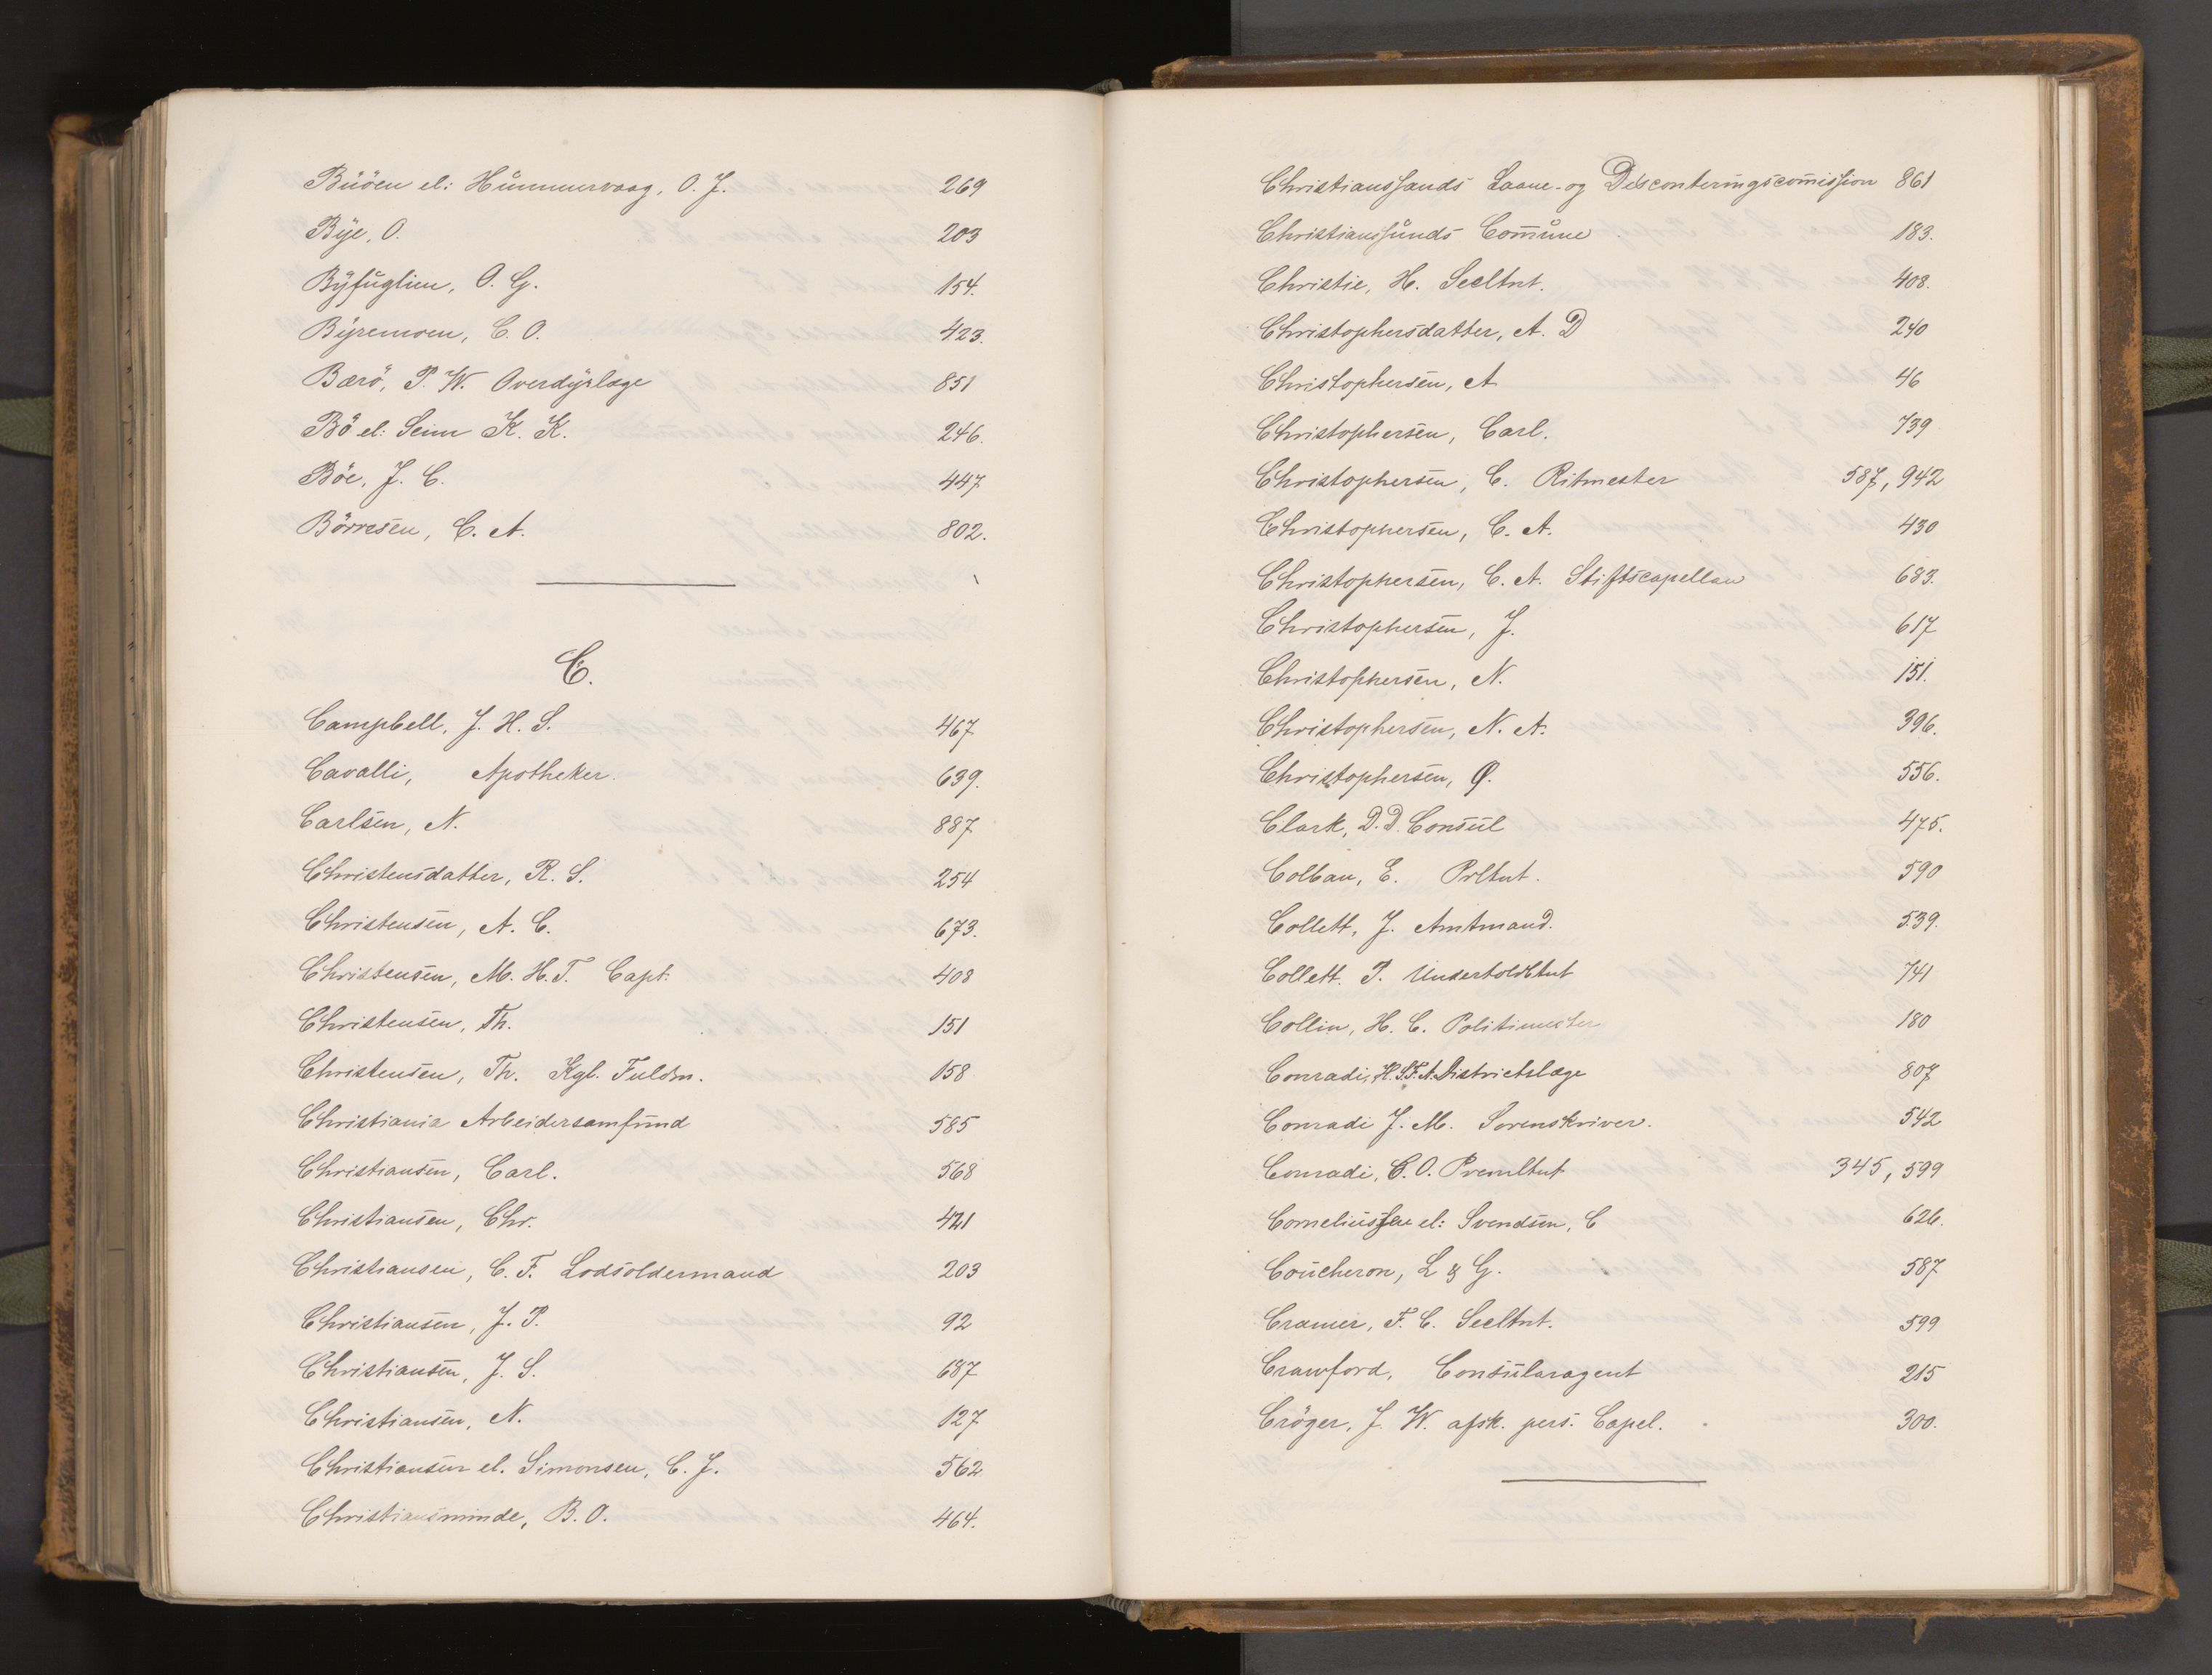 Buöen el: Hummervaag, O. J. 269
Bye, O. 203
Byfuglien, O. G. 154.
Byremoen, C. O. 423.
Bærö, P. W. Overdyrlæge 851
Bö el: Seim K. K. 246.
Böe, J. C. 447
Börresen, C. A. 802.
C.
Campbell, J. H. S. 467
Cavalli, Apotheker. 639.
Carlsen, N. 887
Christensdatter, R. S. 254
Christensen, A. C. 673.
Christensen, M. H. T. Capt. 408
Christensen, Th. 151
Christensen, Th. Kgl. Fuldm. 158
Christiania Arbeidersamfund 585
Christiansen, Carl. 568
Christiansen, Chr. 421
Christiansen, C. F. Lodsoldermand 203
Christiansen, J. P. 92
Christiansen, J. S. 687
Christiansen, N. 127
Christiansen el. Simonsen, C. J. 562
Christiansminde, B. O. 464.
Christianssands Laane- og Disconteringscomission 861
Christianssunds Comune 183.
Christie, H. Secltnt. 408.
Christophersdatter, A. D 240
Christophersen, A 46
Christophersen, Carl. 739
Christophersen, C. Ritmester 587, 942
Christophersen, C. A. 430
Christophersen, C. A. Stiftscapellan 683.
Christophersen, J. 617
Christophersen, N. 151.
Christophersen, N. A. 396.
Christophersen, O. 556.
Clark, D. D. Consul 475.
Colban, E. Prltnt. 590
Collett, J. Amtmand. 539.
Collett. P. Undertoldbtnt 741
Collin, H. C. Politimester 180
Conradi, H. S. F. A. Districtslæge 807
Conradi J. M. Sorenskriver. 542
Conradi, C. O. Premltnt 345, 599
Corneliussen el: Svendsen, C 626.
Coucheron, L & G. 587
Cramer, F. C. Secltnt. 599
Crawford, Consularagent 215
Cröger, J. W. afsk. pers. Capel. 300.